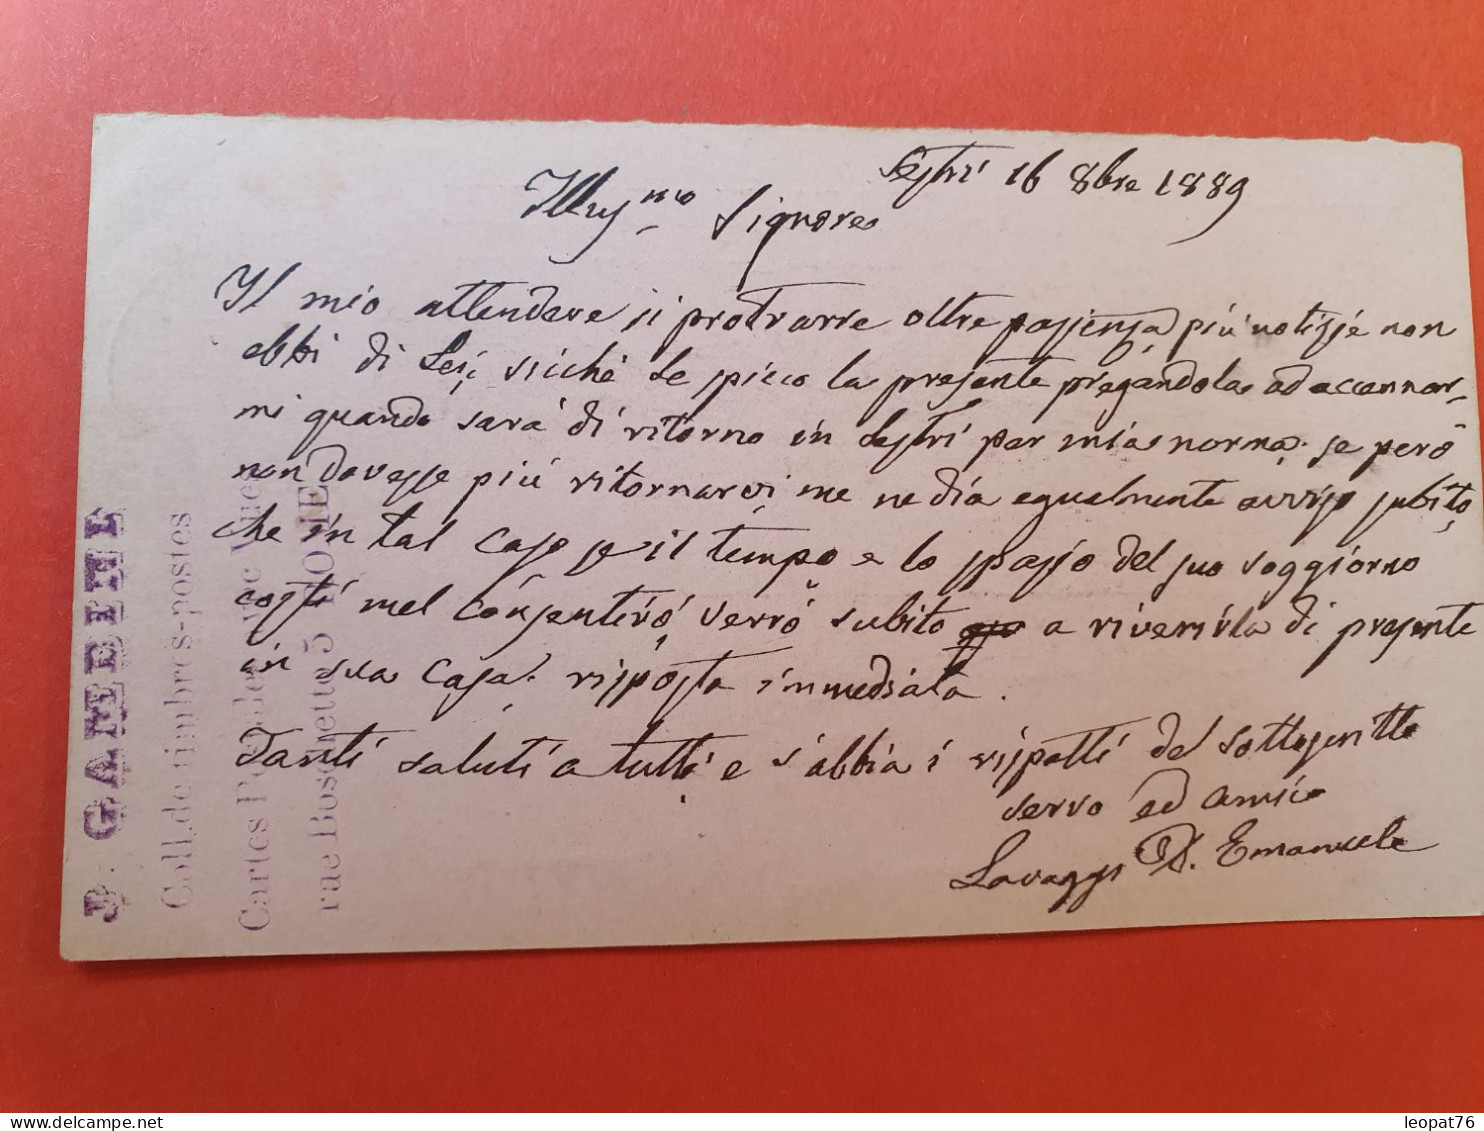 Sestri 16 8bre 1889
Illus.mo Signore
Il mio attendere si protrarre oltre passensa, più notizje non
ebbi di Lei, sicchè Le spicco la presente pregandola ad accennar-
mi quando sarà di ritorno in Sestri per mia norma. se però
non dovesse più ritornarvi, me ne dia egualmente avviso subito,
che in tal caso se il tempo e lo spasso del suo soggiorno
costì mel consentirà, verrò subito a riverirla di presente
in sua casa. risposta immediata.
Tanti saluti a tutti e s'abbia i rispetti del sottoscritto
servo ed amico
Lavaggi D. Emanuele
J. GAMBINI
Coll. de timbres-postes
Cartes Postales
rue Boschetto 5